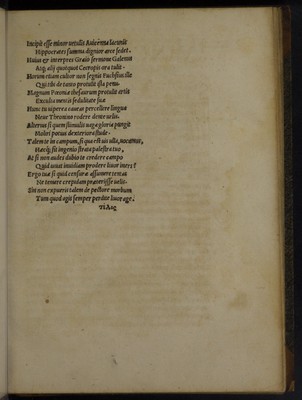 Incipit esse minor vetulis Auicenna lacunis
Hippocrates summa dignior arce sedet.
Huius & interpres Graio sermone Galenus
Atq; alij quotquot Cecropis ora tulit.
Horum etiam cultor non segnis Fuchsius ille
Qui tibi de tanto protulit ista penu.
Magnum Pæoniæ thesaurum protulit artis
Excultu mentis sedulitate suæ
Hunc tu viperea caueas percellere lingua
Neue Theonino rodere dente velis.
Alterius si quem stimulis uaga gloria pungit
Moliri potius dexteriora stude.
Talem te in campum, si qua est uis ulla, uocamus,
Hæc sit ingenio strata palestra tuo,
At si non audes dubio te credere campo
Quid iuuat inuidiam prodere liuor iners?
Ergo tua si quid censura assumere tentat
Ne temere crepidam præterijsse uelit.
Sin non expueris talem de pectore morbum
Tum quod agit semper perdite liuor age.